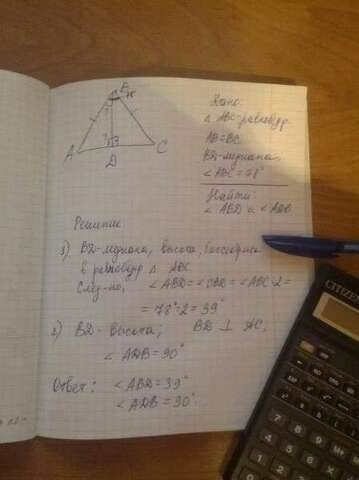 B
A
D
C
Дано:
△ ABC-равнобедр
AB=BC
BD-медиана
∠ ABC=78°
Найти:
∠ ABD и ∠ ADB
Решение
1) BD-медиана, высота, биссектриса
в равнобедр △ ABC
След-но, ∠ ABD = ∠ CBD = ∠ ABC:2=
= 78°:2 = 39°
2) BD- высота; BD ⊥ AC,
∠ ADB = 90°
Ответ: ∠ ABD = 39°
∠ ADB = 90°
CITIZEN